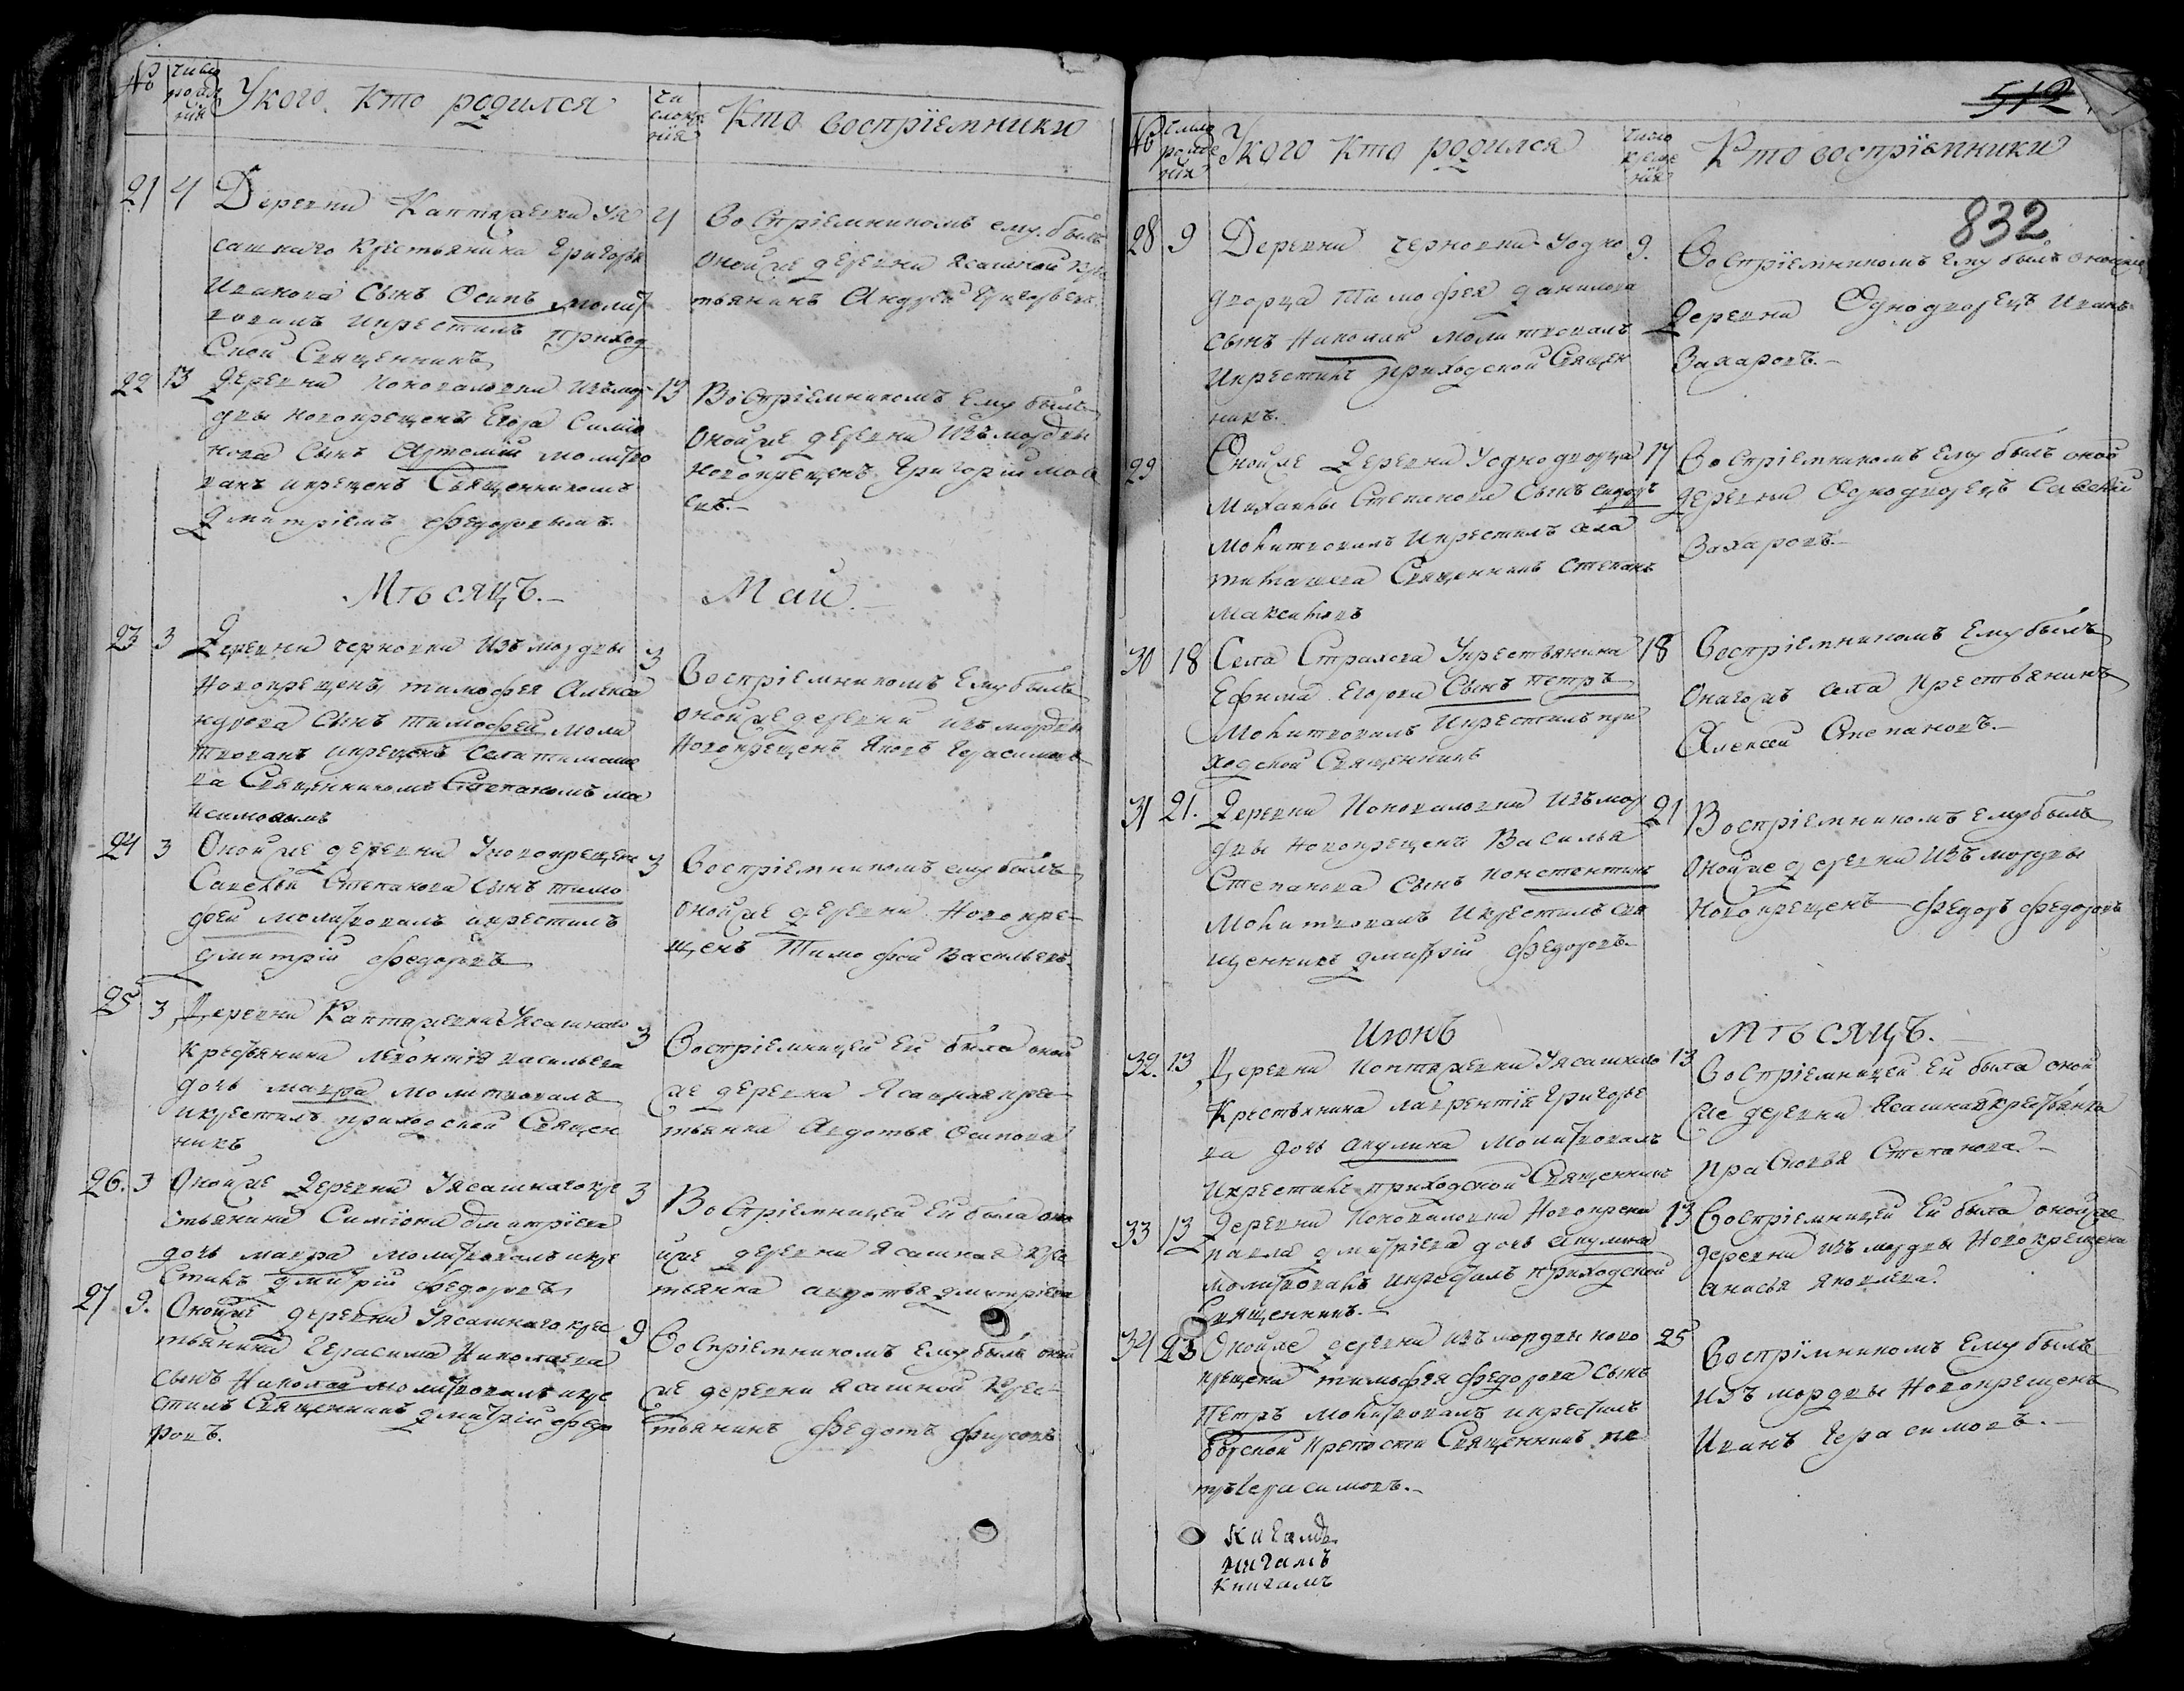 № число рожде нія У кого кто родился чи сло кре нія Кто воспріемники
21 4 Деревни Каптяжевки У Я 4
сашнаго крестьянина Григорья
Иванова сынъ Осипъ молит
вовалъ икрестилъ приход
ской Священникъ
Воспріемникомъ ему былъ
оной же деревни Ясашной кре
тьянинъ Андрей Григорьевъ
22 13 деревни Коноваловки изъ мор 13
двы новокрещенъ Егора Симіо
нова сынъ Артемій молитво
ванъ икрещенъ Священникомъ
Дмитріемъ Федоровымъ.
Воспріемникомъ Ему былъ
оной же деревни изъ мордвы
новокрещенъ Григорій Мои
Мѣсяцъ.— Май.—
23 3 Деревни черновки Изъ мордвы 3
новокрещенъ тимофея Алекса
ндрова сынъ тимофей моли
твованъ икрещенъ села тимаше
ва Священникомъ Степаномъ Ма
ксимовымъ
Воспріемникомъ Ему былъ
оной же деревни изъ мордвы
новокрещенъ Яковъ Герасимовъ
24 3 Оной же деревни Уновокрещена 3
Савелья Степанова сынъ тимо
фей молитвовалъ икрестилъ
дмитрій Федоровъ
Воспріемникомъ ему былъ
оной же деревни новокре
щенъ Тимофей Васильевъ.
25 3 Деревни Каптяжевки Уясашнаго 3
крестьянина леконтія васильева
дочь мавра молитвовалъ
икрестилъ приходской Священ
никъ
Воспріемницей Ей была оной
же деревни Ясашная крес
тьянка Авдотья Осипова
26. 3 Оной же Деревни Уясашнаго кре 3
стьянина Симіона дмитріева
дочь мавра молитвовалъ икре
стилъ дмитрій Федоровъ
Воспріемницей Ей была оно
йже деревни Ясашная кре
тьянка авдотья дмитріева
27 9. Оной же деревни Уясашнаго крес 9
тьянина Герасима Николаева
сынъ Николай молитвовалъ икре
стилъ Священникъ дмитрій Федо
ровъ.
Воспріемникомъ Ему былъ оной
же деревни Ясашной крес
тьянинъ Федотъ Фирсовъ
512
№ число рожде нія У кого кто родился число креще нія Кто воспріемники
832
28 9 Деревни черновки Уодно 9.
дворца Тимофея данилова
сынъ Николай молитвовалъ
Икрестилъ приходской Священ
никъ.
Воспріемникомъ Ему былъ оной же
деревни Однодворецъ Иванъ
Захаровъ.—
29 Оной же Деревни Уоднодворца 17
Михаилы Степанова сынъ сидоръ
молитвовалъ Икрестилъ села
тимашева Священникъ Степанъ
Максимовъ
Воспріемникомъ Ему былъ оной
деревни Однодворецъ Савелій
Захаровъ.—
30 18 Села Страхова Укрестьянина 18
Ефима Егорова Сынъ петръ
молитвовалъ Икрестилъ при
ходской Священникъ
Воспріемникомъ Ему былъ
Онагожъ села крестьянинъ
Алексей Степановъ.—
31 21. Деревни Коноваловки Изъ мор 21
двы новокрещенъ Василья
Степанова сынъ Констентинъ
молитвовалъ Икрестилъ свя
щенникъ дмитрій Федоровъ.—
Воспріемникомъ ему былъ
оной же деревни Изъ мордвы
новокрещенъ Федоръ Федоровъ
Июнь Мѣсяцъ.
32. 13 Деревни Коптяжевки Уясашнаго 13
Крестьянина лаврентія Григорье
ва дочь акулина молитвовалъ
Икрестилъ приходской Священникъ
Воспріемницей Ей была оной
же деревни Ясашная крестьянка
прасковья Степанова.—
33 13 Деревни Коноваловки Новокрещена 13
павла дмитріева дочь акулина
молитвовалъ икрестилъ приходской
Священникъ.—
Воспріемницей Ей была оной же
деревни изъ мордвы Новокрещена
анасья яковлева.
34 23 Оной же деревни изъ мордвы ново 25
крещена тимофея Федорова сынъ
Петръ молитвовалъ икрестилъ
борской крепости Священникъ пе
тръ Герасимовъ.—
Воспріемникомъ Ему былъ
изъ мордвы новокрещенъ
Иванъ Герасимовъ.—
Книгамъ